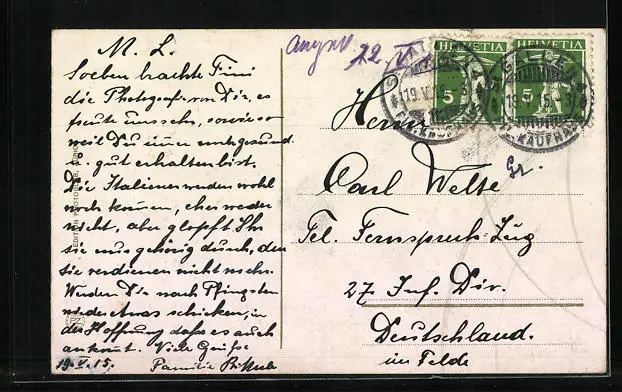 M. L.
Soeben brachte Fini
die Photografie von Dir, es
freute uns sehr, sowieso
weil Du immer noch gesund
u. gut erhalten bist.
Die Italiener werden wohl
noch kommen, eher weder
nicht, aber glopft Ihr
sie nur gehörig durch, den
sie verdienen nicht mehr.
Werden Dir nach Pfingsten
wieder etwas schicken, in
der Hoffnung dass es auch
ankomt. Viele Grüsse
19.V.15. Familie
22
HELVETIA HELVETIA
5 5
ST. GALLEN
19.V.15.
KAUFHAUS
Herrn
Carl Welte
Tel. Fernspruch-Zug
27 Inf. Div.
Deutschland.
im Felde